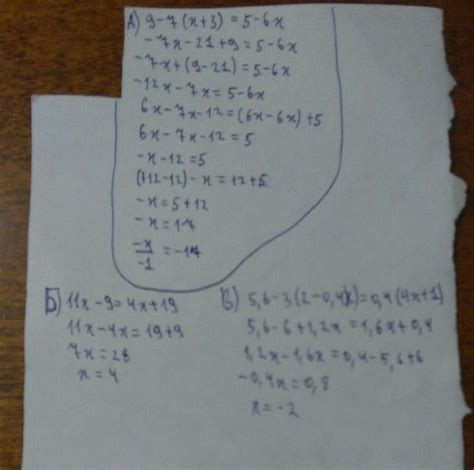 А) 9-7(x+3)=5-6x
-7x-21+9=5-6x
-7x+(9-21)=5-6x
-12x-7x=5-6x
6x-7x-12=(6x-6x)+5
6x-7x-12=5
-x-12=5
(+12-12)-x=12+5
-x=5+12
-x=17
-x/-1=-17
Б) 11x-9=4x+19
11x-4x=19+9
7x=28
x=4
В) 5,6-3(2-0,4x)=0,4(4x+1)
5,6-6+1,2x=1,6x+0,4
1,2x-1,6x=0,4-5,6+6
-0,4x=0,8
x=-2